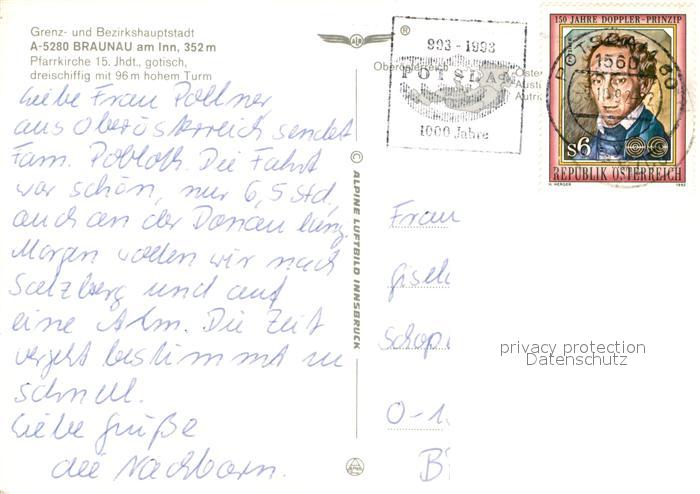 Grenz- und Bezirkshauptstadt
A-5280 BRAUNAU am Inn, 352 m
Pfarrkirche 15. Jhdt., gotisch,
dreischiffig mit 96 m hohem Turm
Liebe Frau Pollner,
aus Oberösterreich sendet
Fam. Die Fahrt
war schön, nur 6,5 Std,
auch an der Donau lang.
Morgen wollen wir nach
Salzberg und auf
eine Alm. Die Zeit
vergeht bestimmt zu
schnell.
Liebe Grüße
die Nachbarn.
© ALPINE LUFTBILD INNSBRUCK
®
Oberösterreich
993 - 1993
POTSDAM
1000 Jahre
150 JAHRE DOPPLER-PRINZIP
s6
REPUBLIK ÖSTERREICH
H. HERGER 1992
POTSDAM 60
1560
Frau
Gisel
Schop
O-1
B
privacy protection
Datenschutz